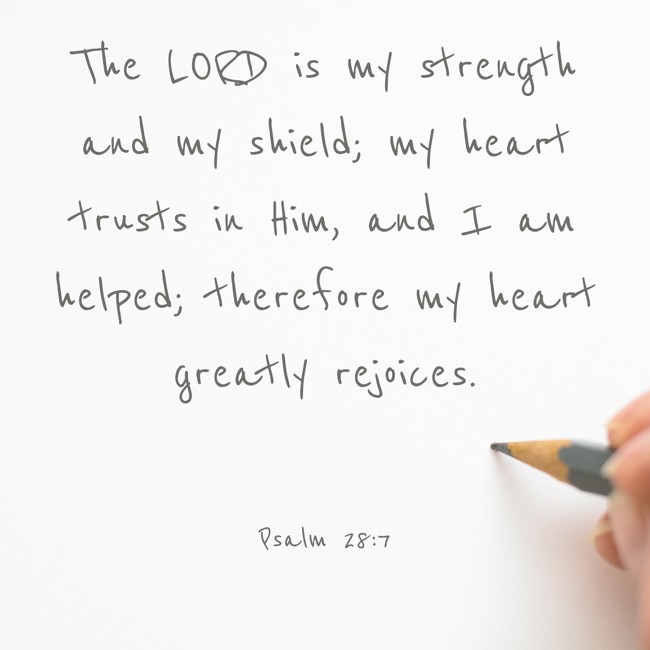 The LORD is my strength
and my shield; my heart
trusts in Him, and I am
helped; therefore my heart
greatly rejoices.
Psalm 28:7